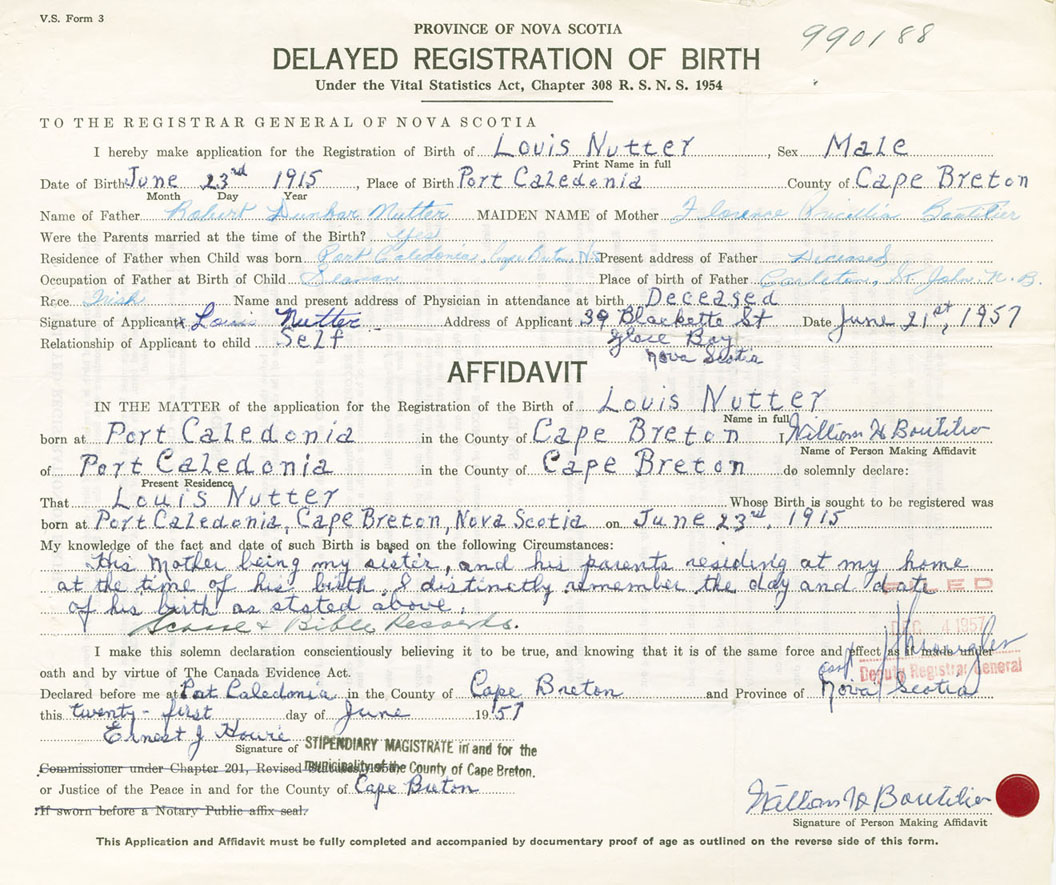 V.S. Form 3
990188
PROVINCE OF NOVA SCOTIA
DELAYED REGISTRATION OF BIRTH
Under the Vital Statistics Act, Chapter 308 R. S. N. S. 1954
TO THE REGISTRAR GENERAL OF NOVA SCOTIA
I hereby make application for the Registration of Birth of Louis Nutter, Sex Male
Print Name in full
Date of Birth June 23rd 1915, Place of Birth Port Caledonia County of Cape Breton
Month Day Year
Name of Father Robert Dunbar Nutter MAIDEN NAME of Mother Florence Pricillia Boutilier
Were the Parents married at the time of the Birth? Yes
Residence of Father when Child was born Port Caledonia, Cape Breton, N.S. Present address of Father Deceased
Occupation of Father at Birth of Child Seaman Place of birth of Father Carleton, St. John N.B.
Race Irish Name and present address of Physician in attendance at birth Deceased
Signature of Applicant x Louis Nutter Address of Applicant 39 Blackette St Date June 21st, 1957
Relationship of Applicant to child Self Glace Bay
Nova Scotia
AFFIDAVIT
IN THE MATTER of the application for the Registration of the Birth of Louis Nutter
Name in full
born at Port Caledonia in the County of Cape Breton I, William H Boutilier
Name of Person Making Affidavit
of Port Caledonia in the County of Cape Breton do solemnly declare:
Present Residence
That Louis Nutter Whose Birth is sought to be registered was
born at Port Caledonia, Cape Breton, Nova Scotia on June 23rd, 1915
My knowledge of the fact and date of such Birth is based on the following Circumstances:
His Mother being my sister, and his parents residing at my home
at the time of his birth. I distinctly remember the day and date
FILED
of his birth as stated above.
& Bible Records.
DEC 4 1957
I make this solemn declaration conscientiously believing it to be true, and knowing that it is of the same force and effect as if made under
oath and by virtue of The Canada Evidence Act.
Deputy Registrar General
Declared before me at Port Caledonia in the County of Cape Breton and Province of Nova Scotia
this twenty-first day of June 1957
Ernest J
Signature of STIPENDIARY MAGISTRATE in and for the
Commissioner under Chapter 201, Revised municipality of the County of Cape Breton.
or Justice of the Peace in and for the County of Cape Breton
If sworn before a Notary Public affix seal.
William H Boutilier
Signature of Person Making Affidavit
This Application and Affidavit must be fully completed and accompanied by documentary proof of age as outlined on the reverse side of this form.